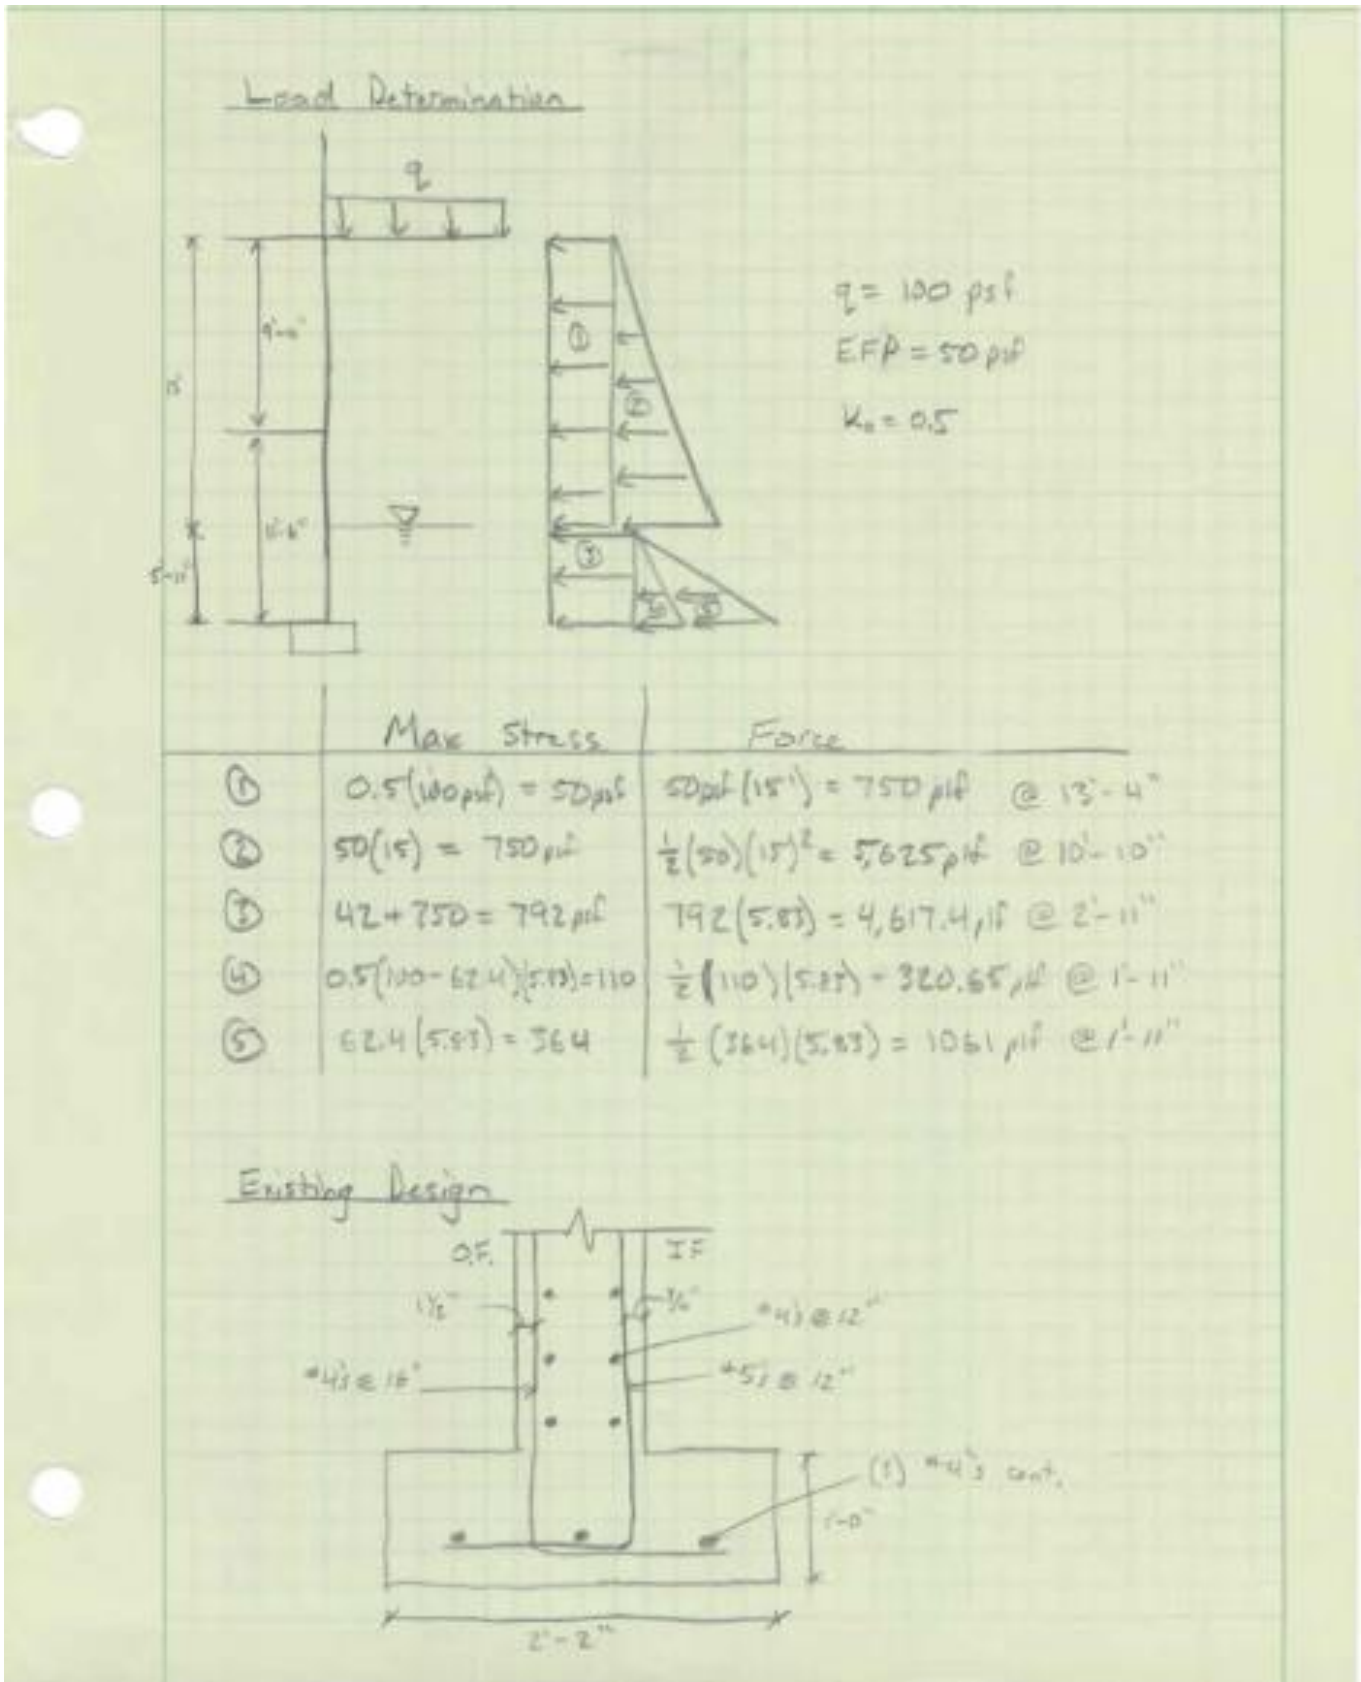 Load Determination
q
q = 100 psf
EFP = 50 psf
K₀ = 0.5
15'
5'-11"
Max Stress Force
① 0.5(100psf) = 50psf 50psf(15') = 750 plf @ 13'-4"
② 50(15) = 750 psf ½(50)(15)² = 5,625 plf @ 10'-10"
③ 42+750 = 792 psf 792(5.83) = 4,617.4 plf @ 2'-11"
④ 0.5(100-62.4)(5.83)=110 ½(110)(5.83) = 320.65 plf @ 1'-11"
⑤ 62.4(5.83) = 364 ½(364)(5.83) = 1061 plf @ 1'-11"
Existing Design
O.F. I.F
1½" ¾"
#4's @ 12"
#4's @ 16" #5's @ 12"
#4's cont.
1'-0"
2'-2"